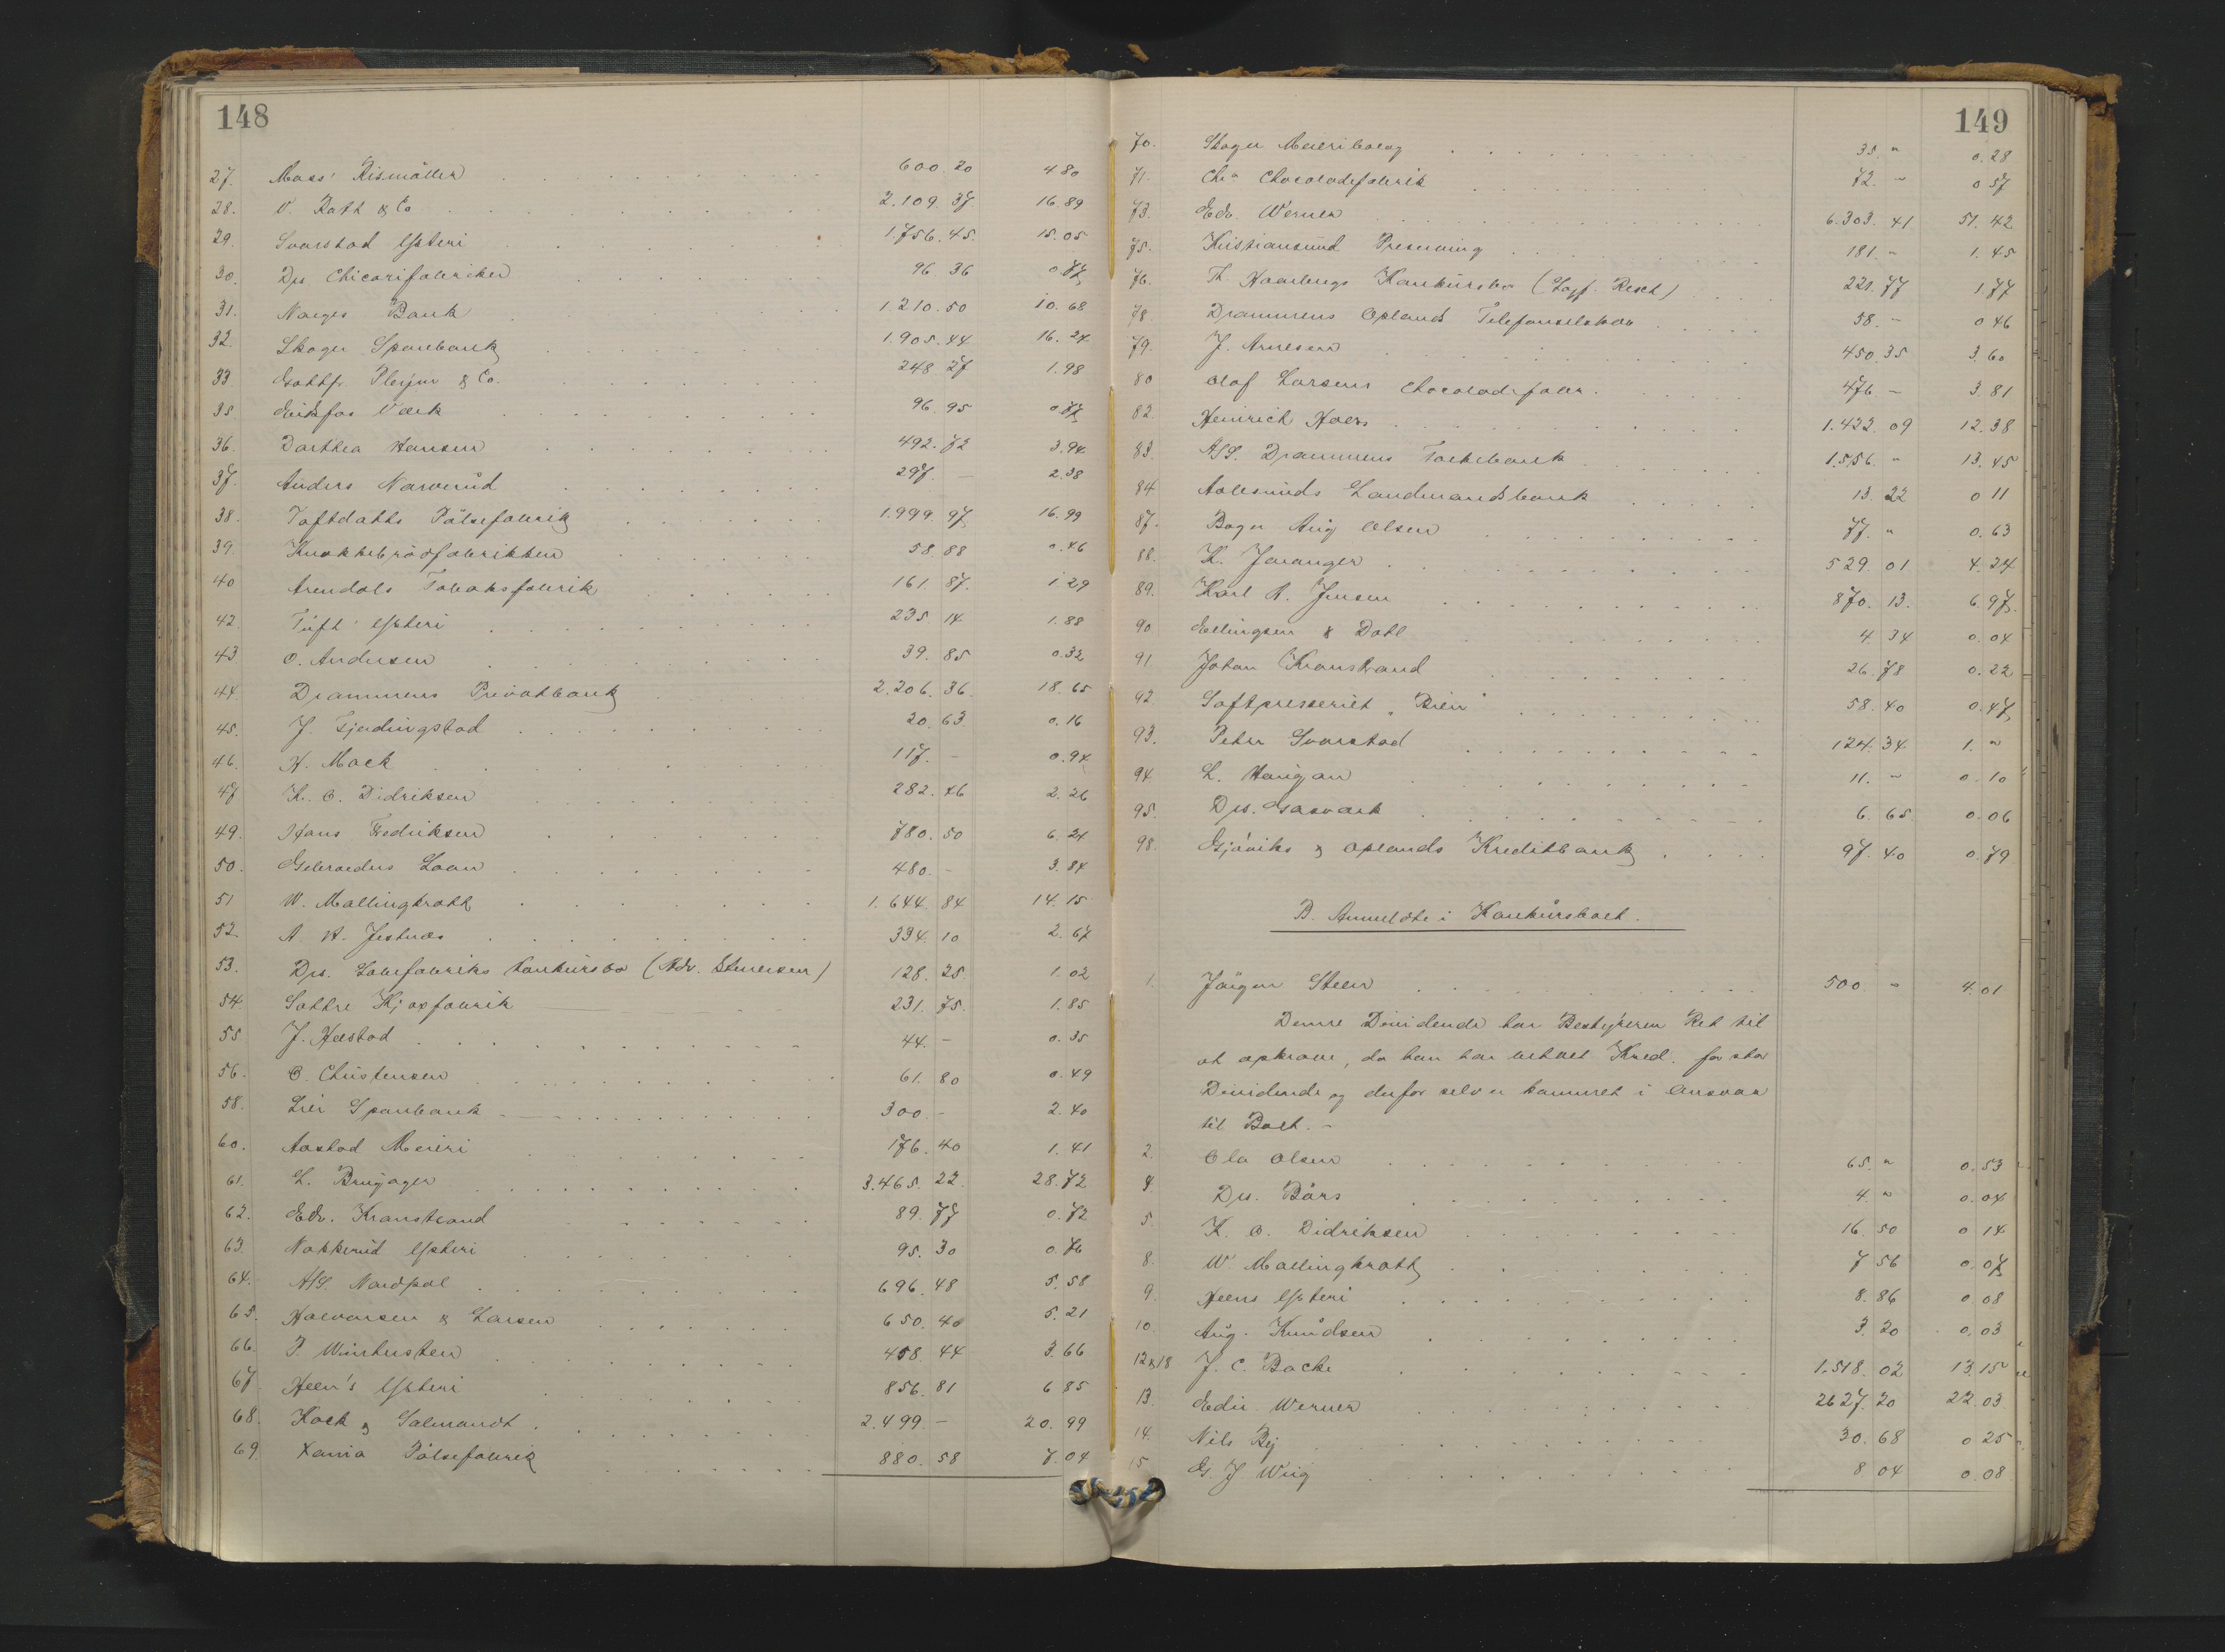 148
27. Moss' Rismöller 600.20 4 80
28. V. Rath & Co 2.109.37 16.89
29. Svarstad Ysteri 1.756.45. 15.05
30. Drs. Chicorifabriker 96.36 0.77
31. Norges Bank 1.210.50 10.68
32. Skoger Sparebank 1.905.44 16.24
33 Gottfr. & Co. 248 27 1.98
35. Eikfos Værk 96.95 0.77
36. Dorthea Hansen 492.72 3.94
37. Anders Narverud 297. — 2.38
38. Toftdahls Pølsefabrik 1.999.97 16.99
39. Knækkebrödfabrikken 58.88 0.46
40 Arendals Tobaksfabrik 161.87. 1 29
42. Tuft Ysteri 235.14 1.88
43 O. Andersen 39.85 0.32
44. Drammens Privatbank 2.206.36. 18.65
45. J. Fjerdingstad 20.63 0.16
46. H. Mack 117. - 0.94
47 K. O. Didriksen 282.46 2.26
49. Hans Fredriksen 780.50 6.24
50. Gulbrander Loan 480. - 3.84
51 W. Mallingkrott 1.644.84 14.15
52. A. H. Jestnæs 334.10 2.67
53. Drs. Laasefabriks Konkursbo (Adv. Stenersen) 128.25. 1.02
54. Sætre Kjæxfabrik 231.75. 1.85
55 J. Hæstad 44. - 0.35
56. O. Christensen 61.80 0.49
58. Lier Sparebank 300 - 2.40
60. Aastad Meieri 176.40 1.41
61. L. Brugager 3.465.22. 28.72
62. Edv. Kranstrand 89.77 0.72
63. Nakkerud Ysteri 95.30 0.76
64. A/S. Nordpol 696.48 5.58
65. Halvorsen & Larsen 650.40 5.21
66. P. Winthersten 458.44 3.66
67. Heen's Ysteri 856.81 6 85
68. Kock & Salmandt 2.499. - 20.99
69 Xania Pölsefabrik 880.58 7.04
149
70. Skoger Meieribolag 35. " 0.28
71. Chr.a Chocoladefabrik 72. - 0 57
73. Edv. Werner 6.303.41 51.42
75. Kristiansund Preserving 181. - 1.45
76. Th. Haarbergs Konkursbo (Sagf. Resch) 221.77 1.77
78. Drammens Oplands Telefonselskab 58. - 0 46
79. J. Arnesen 450 35 3.60
80 Olaf Larsens Chocoladefabr. 476 - 3.81
82. Heinrich Hoers 1.422.09 12.38
83. A/S. Drammens Folkebank 1.556. - 13.45
84 Aalesunds Landmandsbank 13.22 0 11
87. Bager Aug Olsen 77. " 0.63
88. K. Jaranger 529.01 4.24
89. Karl A. Jensen 870.13. 6.97
90 Ellingsen & Dahl 4.34 0.04
91 Johan Kranstrand 26.78 0.22
92 Saftpresseriet "Bien" 58.40 0.47
93. Peter Svarstad 124.34. 1. "
94 L. Haugan 11. " 0.10
95. Drs. Gasværk 6.65 0.06
98. Gjøviks & Oplands Kreditbank 97.40 0.79
B. Anmeldte i Konkursboet.
1. Jörgen Steen 500 - 4.01
Denne Dividende har Bestyreren Ret til
at opkræve, da han har utbet Kred. for stor
Dividende og derfor selv er kommet i Ansvar
til Boet. -
2. Ola Olsen 65. " 0.53
4. Drs. Börs 4. " 0.04
5. K. O. Didriksen 16 50 0 14
8. W. Mallingkrott 7 56 0.07
9. Heens Ysteri 8.86 0.08
10. Aug. Knudsen 3.20 0.03
12 & 18 J. C. Backe 1.518.02 13.15
13. Edv. Werner 2627.20 22.03
14. Nils Bij 30.68 0 25
15 G. J. Wiig 8 04 0.08